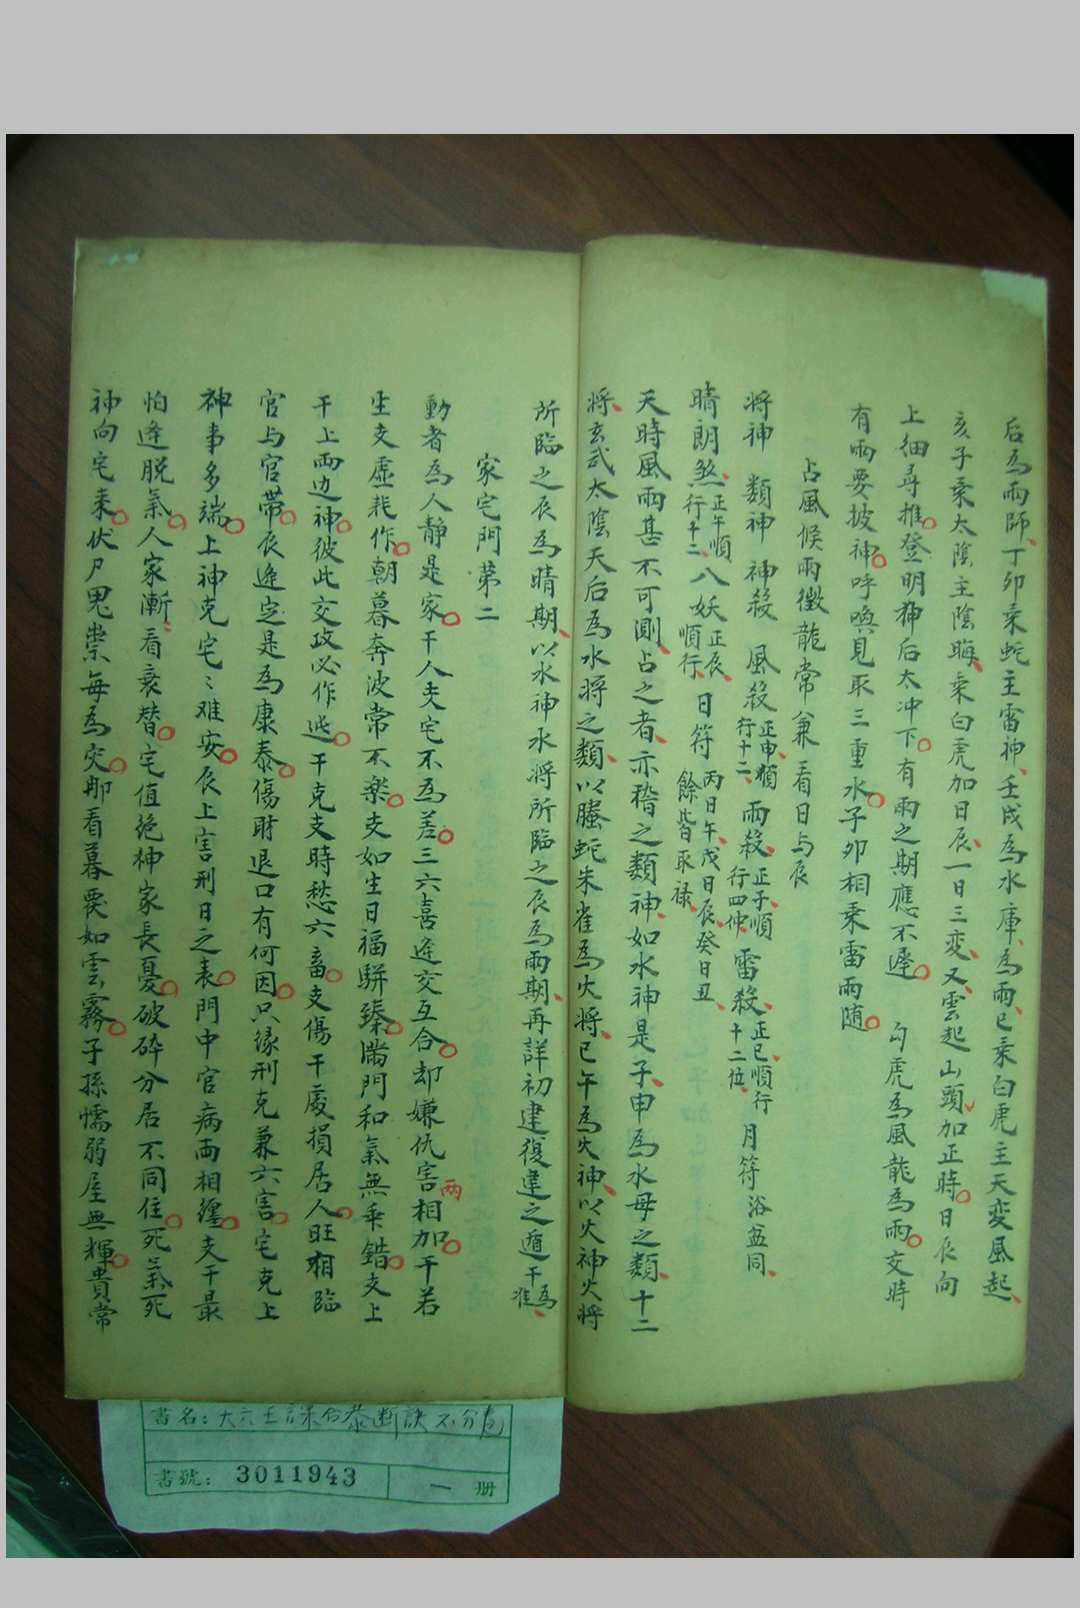 后為雨師、丁卯乘蛇主雷神、壬戌為水庫、為雨、已乘白虎主天変風起、
亥子乘太陰主陰晦、乘白虎加日辰、一日三変、又雲起山頭加正時。日辰向
上細尋推。登明神后太冲下。有雨之期應不遲。 勾虎為風龍為雨。交時
有雨要披神。呼喚見取三重水。子卯相乘雷雨随。
占風候雨徵龍常兼看日与辰
將神 類神 神殺 風殺正申順行十二、雨殺、正子、順行四仲、雷殺、正已、順行十二位、月符浴盆同、
晴朗煞、正午順行十二、八妖正辰、順行、日符丙日午、戊日辰、癸日丑、餘皆取禄、
天時風雨甚不可測、占之者、亦稽之類神、如水神是子、申為水母之類、十二
將、玄武太陰天后為水將之類、以螣蛇朱雀為火將、已午為火神、以火神火將
所臨之辰為晴期、以水神水將所臨之辰為雨期、再詳初建復建之遁干為准、
家宅門第二
動者為人静是家。干人支宅不為差。三六喜逢交互合。却嫌仇害两相加。干若
生支虚耗作。朝暮奔波常不楽。支如生日福駢臻。満門和氣無乖錯。支上
干上両边神。彼此交攻必作迍。干克支時愁六畜。支傷干處損居人。旺相臨
官与官帶。辰逢定是為康泰。傷財退口有何因。只缘刑克兼六害。宅克上
神事多端。上神克宅〻难安。辰上害刑日之表。門中官病両相纏。支干最
怕逢脱氣。人家漸看衰替。宅值绝神家長憂。破碎分居不同住。死氣死
神向宅来。伏尸鬼祟每為灾。那看暮要如雲霧。子孫懦弱屋無輝。貴常
書名：大六壬課合泰断訣不分卷
書號：3011943 一 册